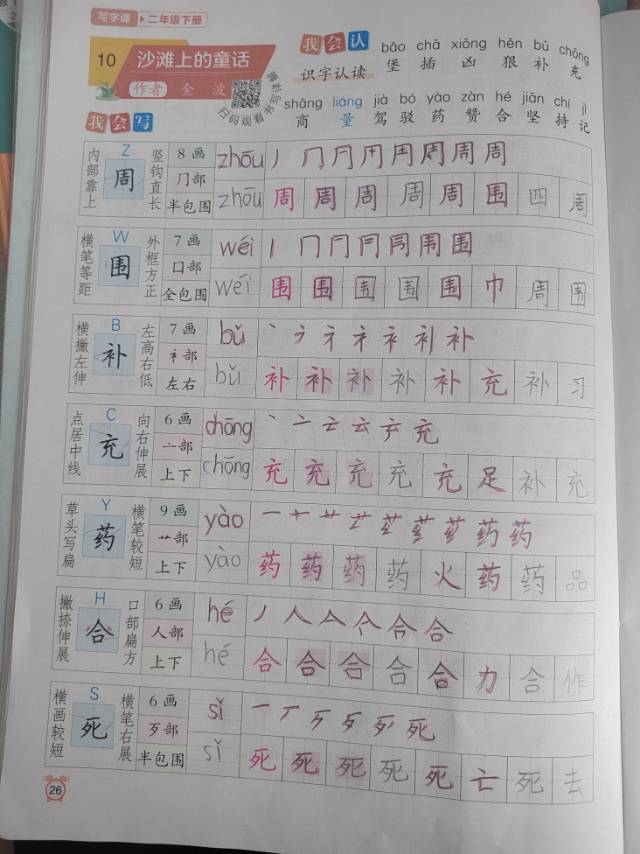 写字课 二年级下册
10 沙滩上的童话
作者 金 波
扫码观看书写示范
我会认
识字认读
bǎo chā xiōng hěn bǔ chōng
堡 插 凶 狠 补 充
shāng liáng jià bó yào zàn hé jiān chí jì
商 量 驾 驳 药 赞 合 坚 持 记
我会写
内部靠上 Z 周 竖钩直长 8画 冂部 半包围
zhōu 丿 冂 冂 用 周 周 周 周
zhōu 周 周 周 周 周 围 四 周
横笔等距 W 围 外框方正 7画 囗部 全包围
wéi 丨 冂 冂 囗 同 围 围
wéi 围 围 围 围 围 巾 周 围
横撇左伸 B 补 左高右低 7画 衤部 左右
bǔ 丶 礻 衤 补 补
bǔ 补 补 补 补 补 充 补 习
点居中线 C 充 向右伸展 6画 亠部 上下
chōng 丶 亠 云 充
chōng 充 充 充 充 充 足 补 充
草头写扁 Y 药 横笔较短 9画 艹部 上下
yào 一 十 艹 药 药
yào 药 药 药 药 火 药 药 品
撇捺伸展 H 合 口部扁方 6画 人部 上下
hé 丿 人 亼 合 合
hé 合 合 合 合 合 力 合 作
横画较短 S 死 横笔右展 6画 歹部 半包围
sǐ 一 丆 歹 歹 死
sǐ 死 死 死 死 死 亡 死 去
26